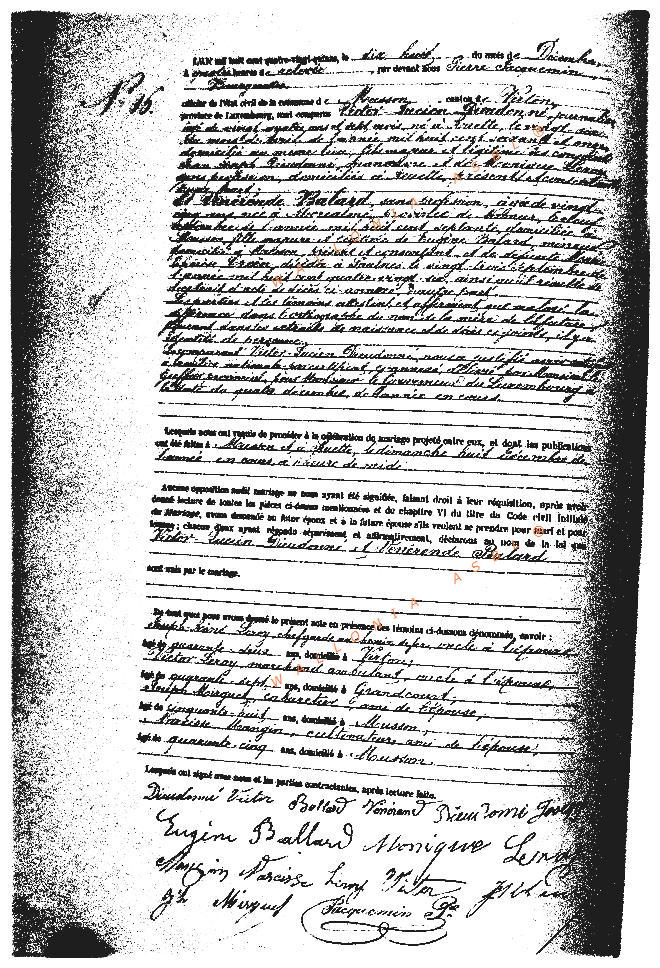 L'AN mil huit cent quatre-vingt-quinze, le dix huit du mois de Décembre,
à heures de relevée, par devant nous Pierre Jacquemin,
Bourgmestre,
N° 16.
officier de l'état civil de la commune de Musson canton de Virton,
province de Luxembourg, sont comparus Victor Lucien Dieudonné, journalier
âgé de vingt quatre ans et sept mois, né à Ruette, le vingt
du mois d'avril de l'année mil huit cent soixante et onze,
domicilié au même lieu, fils majeur et légitime des
Jean Joseph Dieudonné, manoeuvre et de Monique Leroy
sans profession, domiciliés à Ruette, présents et consentants
d'une part;
et Vénérende Balard, sans profession, âgée de vingt-
cinq ans née à province de
de l'année mil huit cent septante, domiciliée à
Musson, fille majeure et légitime de Eugène Balard, mineur
domicilié à Musson, présent et consentant et de défunte
décédée à Saulnes le vingt trois septembre de
l'année mil huit cent quatre-vingt six, ainsi qu'il résulte de
l'extrait d'acte de décès ci-annexé, d'autre part.
Les parties et les témoins attestent et affirment que malgré la
différence dans l'orthographe du nom de la mère de la future,
figurant dans les extraits de naissance et de décès ci joints, il y a
identité de personne.
Le comparant Victor Lucien Dieudonné, nous a justifié avoir
nationale par certificat
provincial, pour Monsieur le Gouverneur du Luxembourg à
la date du quatre décembre, de l'année en cours.
Lesquels nous ont requis de procéder à la célébration du mariage projeté entre eux, et dont les publications
ont été faites à Musson et à Ruette, le dimanche huit décembre de
l'année en cours, à l'heure de midi.
Aucune opposition audit mariage ne nous ayant été signifiée, faisant droit à leur réquisition, après avoir
donné lecture de toutes les pièces ci-dessus mentionnées et du chapitre VI du titre du Code civil intitulé
du Mariage, avons demandé au futur époux et à la future épouse s'ils veulent se prendre pour mari et pour
femme; chacun d'eux ayant répondu séparément et affirmativement, déclarons au nom de la loi que
Victor Lucien Dieudonné et Vénérende Balard
sont unis par le mariage.
De tout quoi nous avons dressé le présent acte en présence des témoins ci-dessous dénommés, savoir :
Joseph René Leroy, chef garde au chemin de fer, oncle à l'épouse,
âgé de quarante deux ans, domicilié à Virton,
Victor Leroy, marchand ambulant, oncle à l'épouse,
âgé de quarante sept ans, domicilié à Grandcourt,
Joseph Mirguet, cabaretier, ami de l'épouse,
âgé de cinquante huit ans, domicilié à Musson,
Narcisse Mangin, cultivateur, ami de l'épouse,
âgé de quarante cinq ans, domicilié à Musson.
Lesquels ont signé avec nous et les parties contractantes, après lecture faite.
Dieudonné Victor Ballard Vénérand Dieudonné Joseph
Eugène Ballard Monique Leroy
Mangin Narcisse Leroy Victor
Jh Mirguet Jacquemin Pre
WALLONIA ASBL